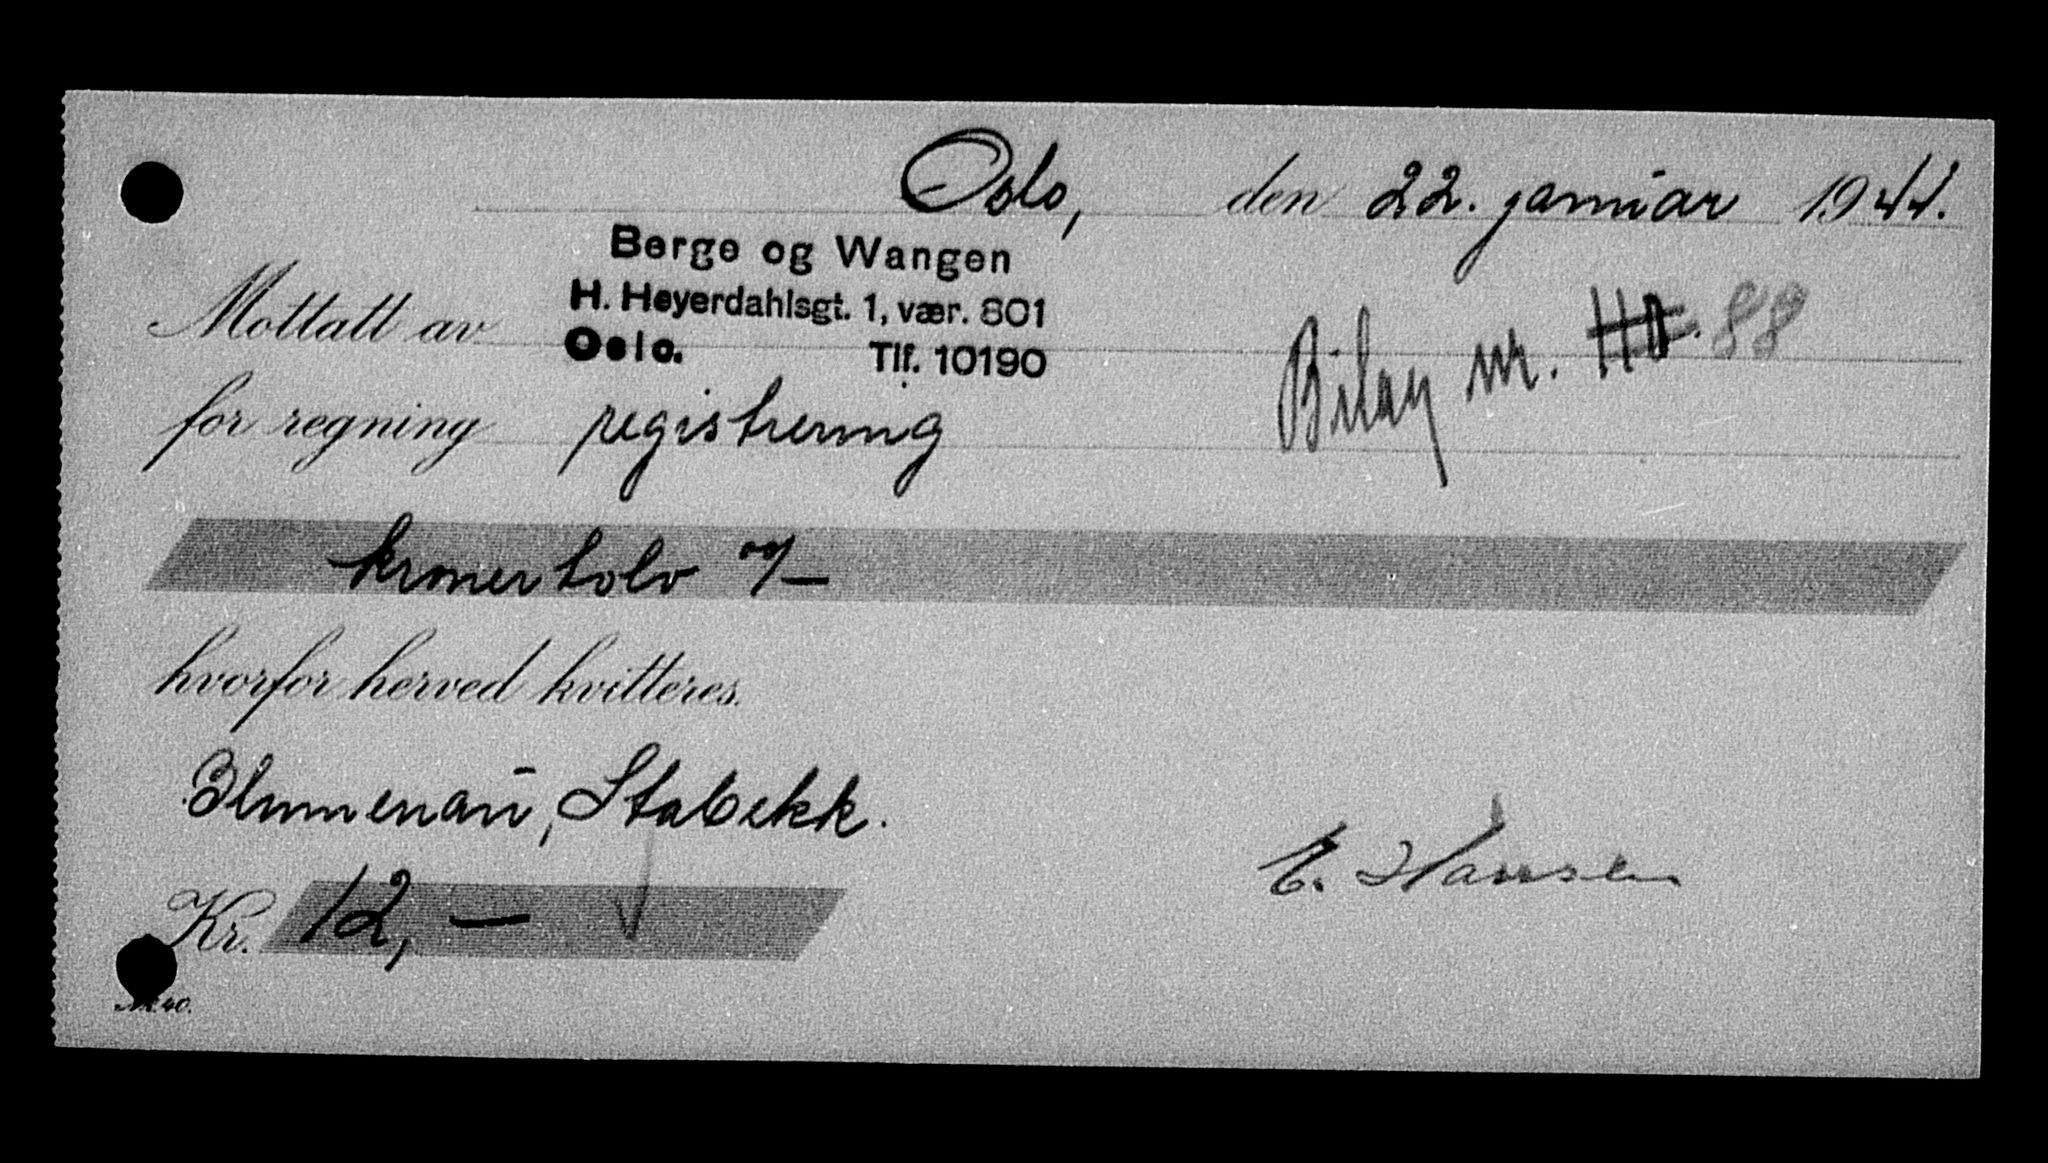 Oslo, den 22. januar 1944.
Berge og Wangen
H. Heyerdahlsgt. 1, vær. 801
Mottatt av Oslo. Tlf. 10190
Bilag nr. 88
for regning registrering
kroner tolv og/—
hvorfor herved kvitteres.
Blumenau, Stabekk.
E. Hansen
Kr. 12,—
Nr. 40.